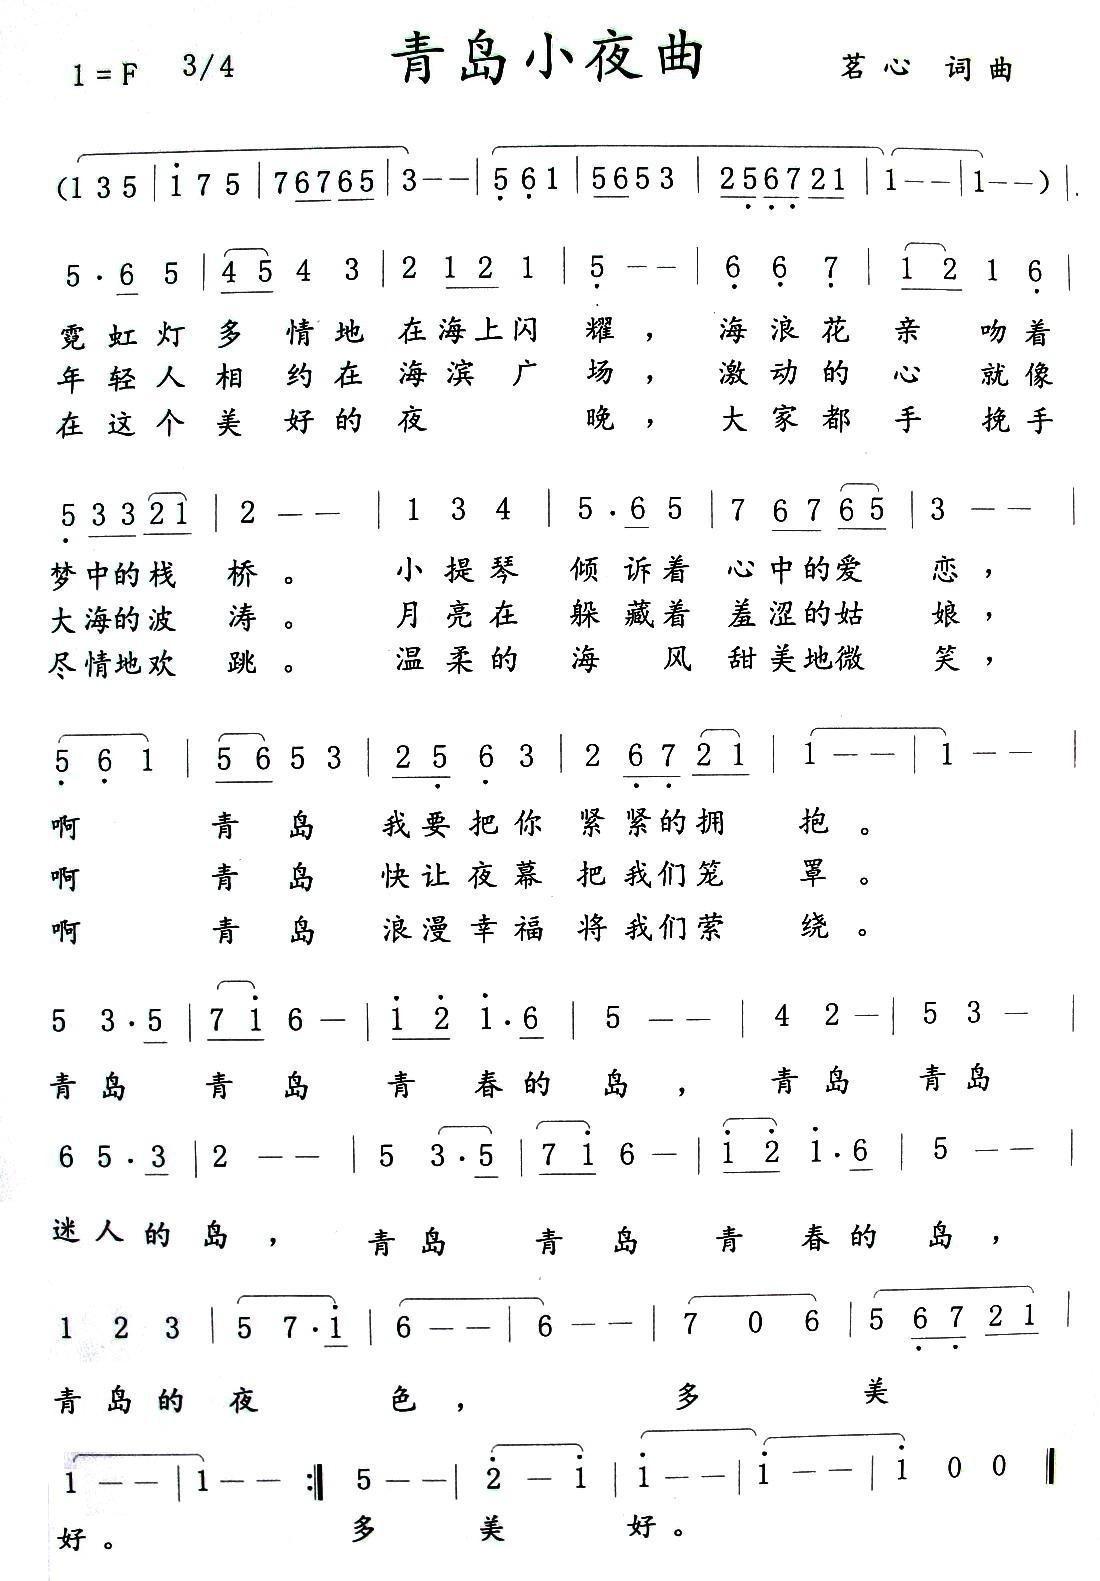 青岛小夜曲
1=F 3/4 茗心 词曲
(1 3 5 | i 7 5 | 7 6 7 6 5 | 3 - - | 5 6 1 | 5 6 5 3 | 2 5 6 7 2 1 | 1 - - | 1 - - ) |
5 · 6 5 | 4 5 4 3 | 2 1 2 1 | 5 - - | 6 6 7 | 1 2 1 6 |
霓虹灯多情地在海上闪耀，海浪花亲吻着
年轻人相约在海滨广场，激动的心就像
在这个美好的夜晚，大家都手挽手
5 3 3 2 1 | 2 - - | 1 3 4 | 5 · 6 5 | 7 6 7 6 5 | 3 - - |
梦中的栈桥。小提琴倾诉着心中的爱恋，
大海的波涛。月亮在躲藏着羞涩的姑娘，
尽情地欢跳。温柔的海风甜美地微笑，
5 6 1 | 5 6 5 3 | 2 5 6 3 | 2 6 7 2 1 | 1 - - | 1 - - |
啊青岛我要把你紧紧的拥抱。
啊青岛快让夜幕把我们笼罩。
啊青岛浪漫幸福将我们萦绕。
5 3 · 5 | 7 i 6 - | i 2 i · 6 | 5 - - | 4 2 - | 5 3 - |
青岛青岛青春的岛，青岛青岛
6 5 · 3 | 2 - - | 5 3 · 5 | 7 i 6 - | i 2 i · 6 | 5 - - |
迷人的岛，青岛青岛青春的岛，
1 2 3 | 5 7 · i | 6 - - | 6 - - | 7 0 6 | 5 6 7 2 1 |
青岛的夜色，多美
1 - - | 1 - - :‖ 5 - - | 2 - i | i - - | i - - | i 0 0 ‖
好。多美好。